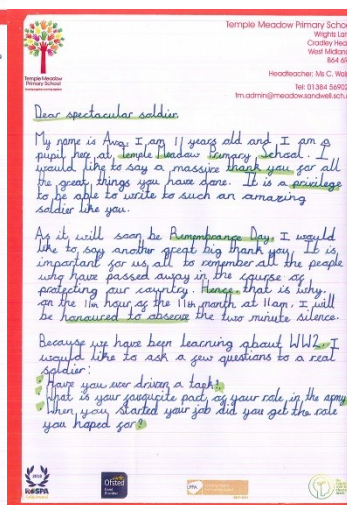 Temple Meadow Primary School
Wrights Lane
Cradley Heath
West Midlands
B64
Headteacher: Ms C.
Tel: 01384
Temple Meadow
Primary School
Dear spectacular soldier,
My name is Ava, I am 11 years old and I am a
pupil here at Temple Meadow Primary School. I
would like to say a massive thank you for all
the great things you have done. It is a privilege
to be able to write to such an amazing
soldier like you.
As it will soon be Remembrance Day, I would
like to say another great big thank you. It is
important for us all to remember all the people
who have passed away in the course of
protecting our country. Hence, that is why,
on the 11th hour of the 11th month at 11am, I will
be honoured to observe the two minute silence.
Because we have been learning about WW2, I
would like to ask a few questions to a real
soldier:
Have you ever driven a tank?
What is your favourite part of your role in the army?
When you started your job did you get the role
you hoped for?
RoSPA
Ofsted